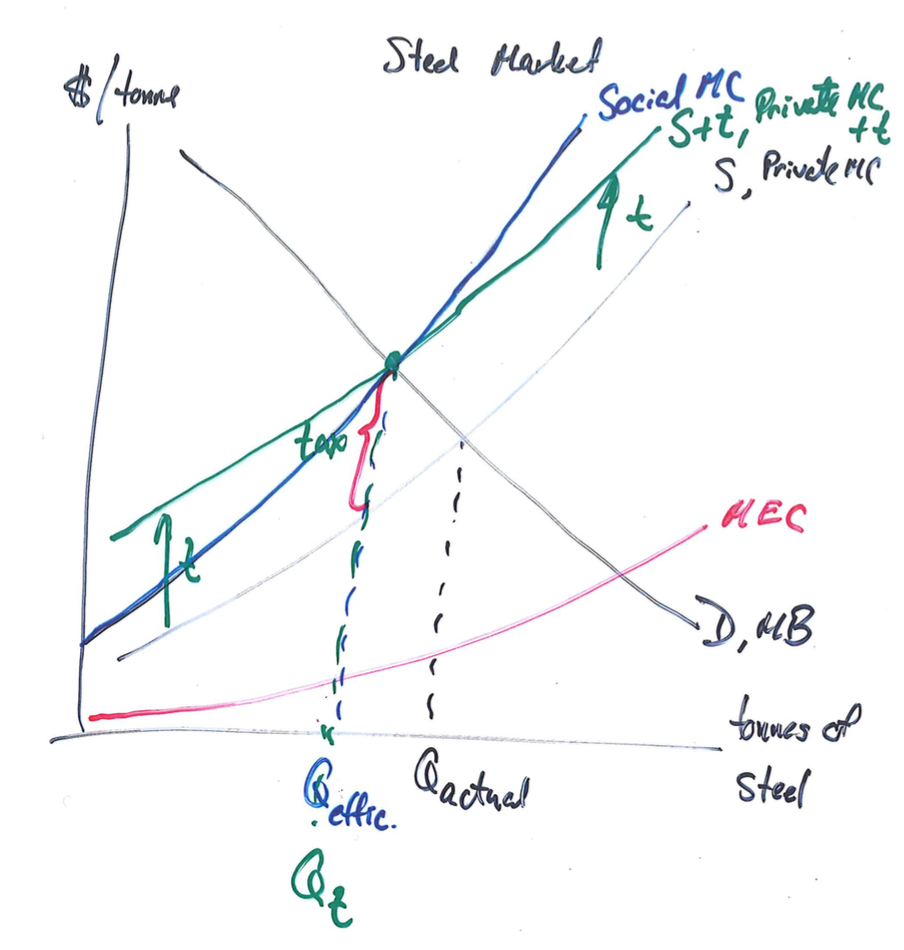 Steel Market
$/tonne
Social MC
S+t, Private MC
+t
S, Private MC
t
tax
t
MEC
D, MB
tonnes of
Steel
Qeffic.
Qactual
Qt